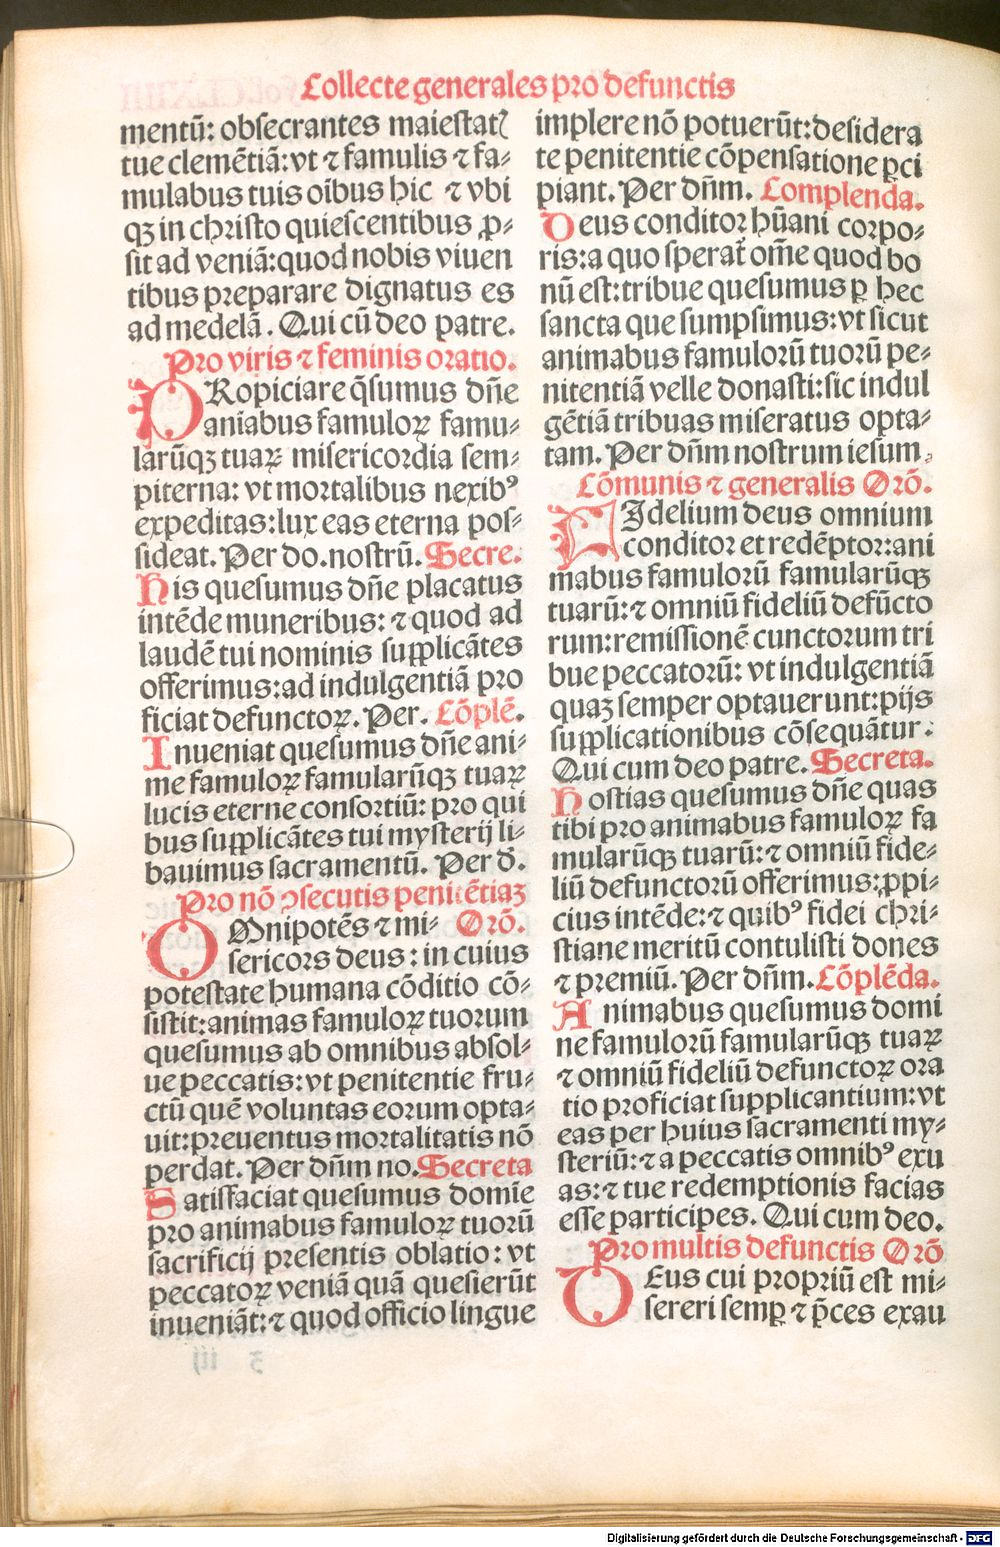 Collecte generales pro defunctis
mentū: obsecrantes maiestatꝭ
tue clemētiā: vt ⁊ famulis ⁊ fa⸗
mulabus tuis oībus hic ⁊ vbi
qꝫ in christo quiescentibus ꝓ⸗
sit ad veniā: quod nobis viuen
tibus preparare dignatus es
ad medelā. Qui cū deo patre.
Pro viris ⁊ feminis oratio.
PRopiciare q̄sumus dn̄e
aniabus famuloꝝ famu⸗
larūqꝫ tuaꝝ misericordia sem⸗
piterna: vt mortalibus nexibꝰ
expeditas: lux eas eterna pos⸗
sideat. Per do. nostrū. Secre.
His quesumus dn̄e placatus
intēde muneribus: ⁊ quod ad
laudē tui nominis supplicātes
offerimus: ad indulgentiā pro
ficiat defunctoꝝ. Per. Cōplē.
Inueniat quesumus dn̄e ani⸗
me famuloꝝ famularūqꝫ tuaꝝ
lucis eterne consortiū: pro qui
bus supplicātes tui mysterij li⸗
bauimus sacramentū. Per d̄.
Pro nō ꝯsecutis penitētiaꝫ
OMnipotēs ⁊ mi⸗ Orō.
sericors deus: in cuius
potestate humana cōditio cō⸗
sistit: animas famuloꝝ tuorum
quesumus ab omnibus absol⸗
ue peccatis: vt penitentie fru⸗
ctū quē voluntas eorum opta⸗
uit: preuentus mortalitatis nō
perdat. Per dn̄m no. Secreta
Satisfaciat quesumus domīe
pro animabus famuloꝝ tuorū
sacrificij presentis oblatio: vt
peccatoꝝ veniā quā quesierūt
inueniāt: ⁊ quod officio lingue
implere nō potuerūt: desidera
te penitentie cōpensatione ꝑci
piant. Per dn̄m. Complenda.
Deus conditor hūani corpo⸗
ris: a quo sperat᷑ om̄e quod bo
nū est: tribue quesumus ꝑ hec
sancta que sumpsimus: vt sicut
animabus famulorū tuorū pe⸗
nitentiā velle donasti: sic indul
gētiā tribuas miseratus opta⸗
tam. Per dn̄m nostrum iesum.
Cōmunis ⁊ generalis Orō.
FIdelium deus omnium
conditor et redēptor: ani
mabus famulorū famularūqꝫ
tuarū: ⁊ omniū fideliū defūcto
rum: remissionē cunctorum tri
bue peccatorū: vt indulgentiā
quaꝫ semper optauerunt: pijs
supplicationibus cōsequātur.
Qui cum deo patre. Secreta.
Hostias quesumus dn̄e quas
tibi pro animabus famuloꝝ fa
mularūqꝫ tuarū: ⁊ omniū fide⸗
liū defunctorū offerimus: ꝓpi⸗
cius intēde: ⁊ quibꝰ fidei chri⸗
stiane meritū contulisti dones
⁊ premiū. Per dn̄m. Cōplēda.
Animabus quesumus domi
ne famulorū famularūqꝫ tuaꝝ
⁊ omniū fideliū defunctoꝝ ora
tio proficiat supplicantium: vt
eas per huius sacramenti my⸗
steriū: ⁊ a peccatis omnibꝰ exu
as: ⁊ tue redemptionis facias
esse participes. Qui cum deo.
Pro multis defunctis Orō
DEus cui propriū est mi⸗
sereri semꝑ ⁊ p̄ces exau
Digitalisierung gefördert durch die Deutsche Forschungsgemeinschaft - DFG